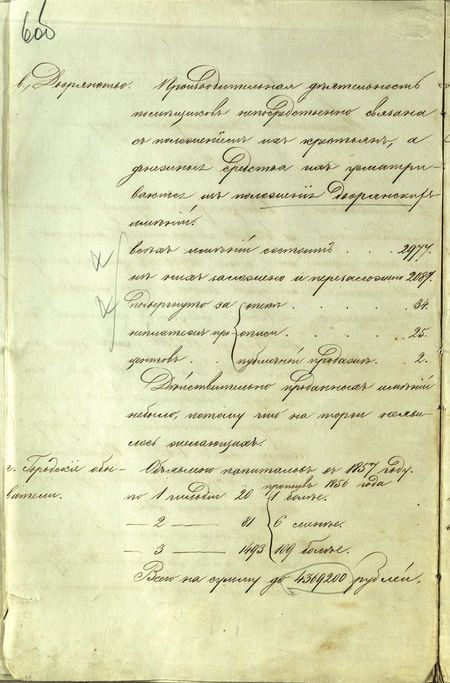 в) Дворянство. Производительная деятельность
помѣщиковъ непосредственно связана
съ положеніемъ ихъ крестьянъ, а
денежныя средства ихъ усматри-
ваются изъ положенія Дворянскихъ
имѣній.
всѣхъ имѣній состоитъ . . . 2977.
изъ нихъ заложено и перезаложено 2087.
подвергнуто за опекѣ . . . . . 34.
неплатежъ про описи . . . . 25.
центовъ . . публичной продажѣ . . 2.
Дѣйствительно проданныхъ имѣній
небыло, потому что на торги неяви-
лось желающихъ.
г. Городскіе обы- Объявлено капиталовъ въ 1857 году.
противъ 1856 года
ватели. по 1 гильдіи 20 1 болѣе.
— 2 — 81 6 менѣе.
— 3 — 1493 109 болѣе.
Всего на сумму до 4369200 рублей.